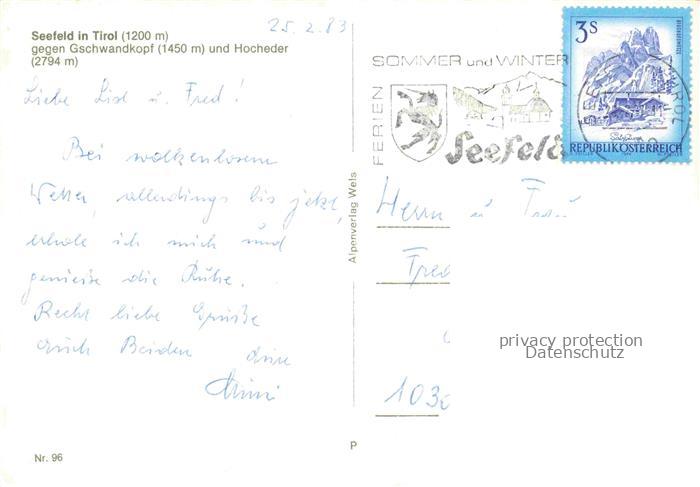 25.2.83
Seefeld in Tirol (1200 m)
gegen Gschwandkopf (1450 m) und Hocheder
(2794 m)
Liebe Lisl u. Fred!
Bei wolkenlosem
Wetter, allerdings bis jetzt,
erhole ich mich und
genieße die Ruhe.
Recht liebe Grüße
Euch Beiden
Alpenverlag Wels
Nr. 96
P
SOMMER und WINTER
FERIEN
Seefeld
3S
REPUBLIK ÖSTERREICH
Herrn u Frau
Fred
privacy protection
Datenschutz
103